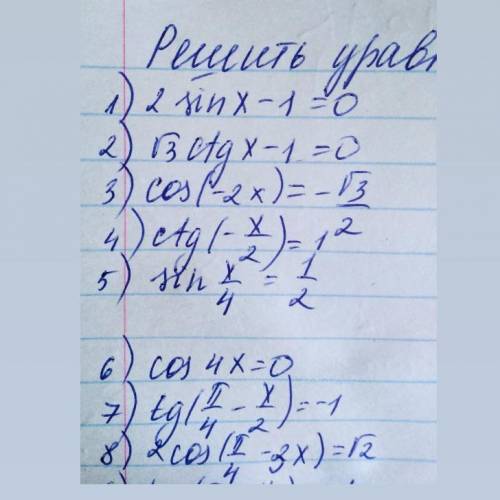 Решить
1) 2 sin x - 1 = 0
2) √3 ctg x - 1 = 0
3) cos(-2x) = -√3/2
4) ctg(-x/2) = 1
5) sin x/4 = 1/2
6) cos 4x = 0
7) tg(π/4 - x/2) = -1
8) 2cos(π/4 - 3x) = √2